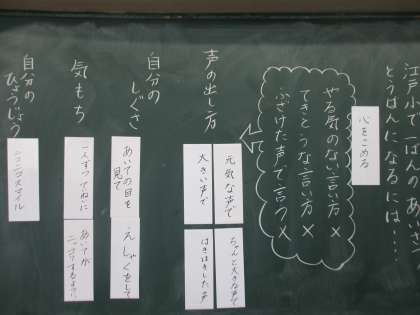 江戸小で一ばんのあいさつ
とうばんになるには・・・・
心をこめる
やる気のない言い方×
てきとうな言い方×
ふざけた声で言う×
声の出し方
元気な声で
ちゃんと大きな声で
大きい声で
はきはきした声
自分の
しぐさ
あいての目を
見て
えしゃくをして
気もち
一人ずつていねいに
あいてが
ニッコリするように
自分の
ひょうじょう
ニコニコスマイル